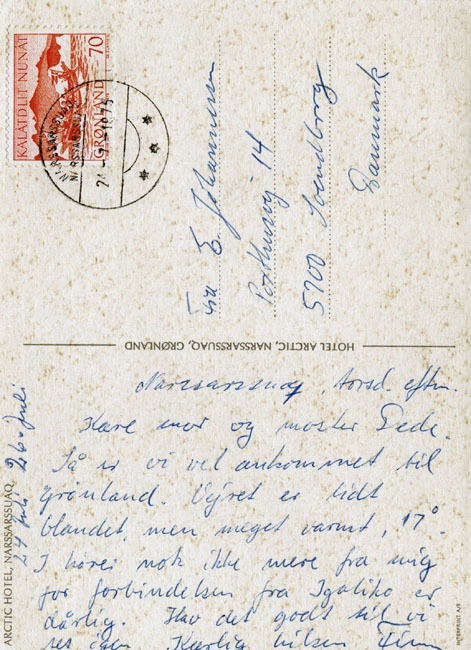 KALAALLIT NUNÂT
GRØNLAND 70
NARSSARSSUAQ
NARSSARSSUAQ
Fru E. Johannesen
14
5700 Svendborg
Danmark
HOTEL ARCTIC, NARSSARSSUAQ, GRØNLAND
ARCTIC HOTEL, NARSSARSSUAQ
24 juli 26. juli
Narssarssuaq, torsd. eftm.
Kære mor og moster Pede.
Så er vi vel ankommet til
Grønland. Vejret er lidt
blandet, men meget varmt, 17°.
I hører nok ikke mere fra mig
for forbindelsen fra Igaliko er
dårlig. Hav det godt til vi
ses igen. Kærlig hilsen Finn
INTERPRINT A/S